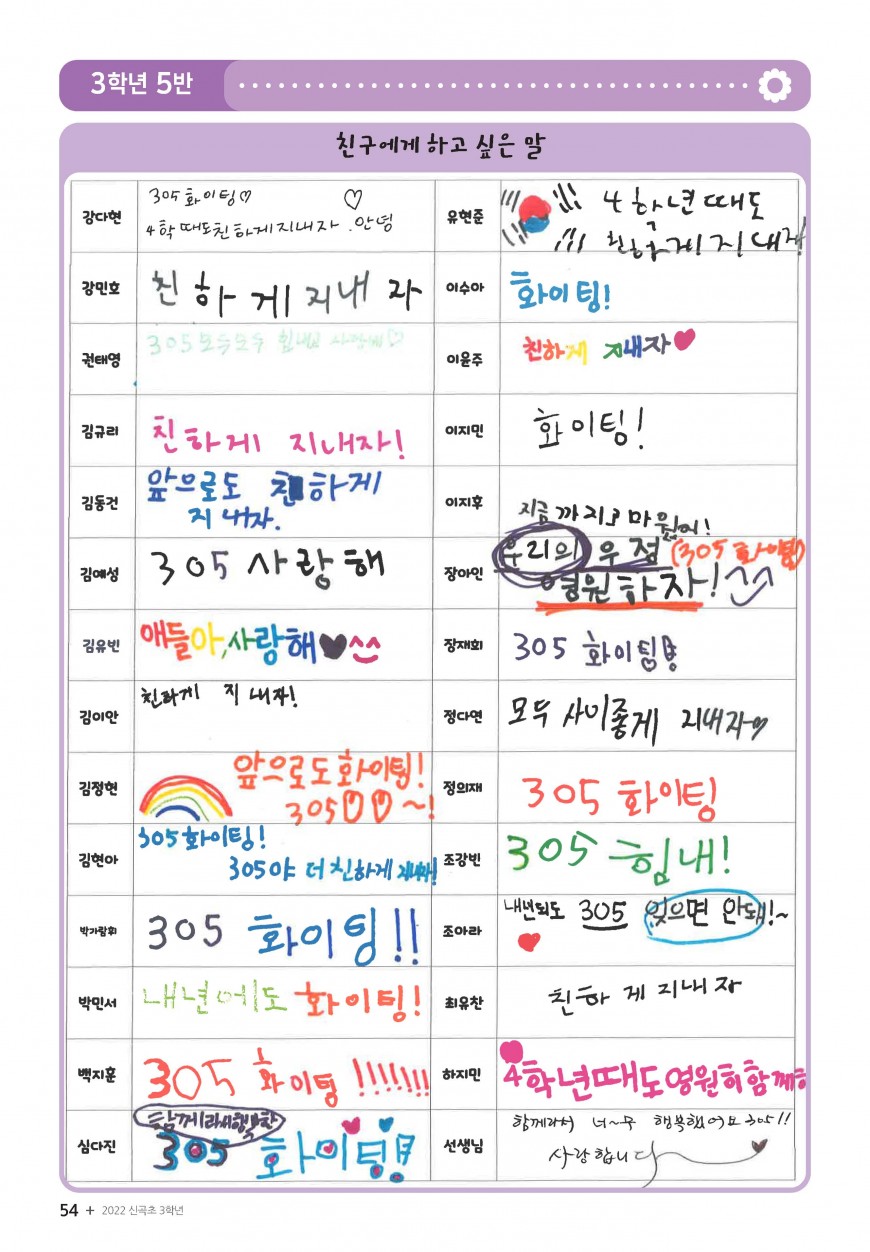 3학년 5반
친구에게 하고 싶은 말
강다현
305 화이팅♡
4학때도친하게지내자 .안녕
강민호
친하게지내자
권태영
305모두모두 힘내고 사랑해♡
김규리
친하게 지내자!
김동건
앞으로도 친하게
지내자.
김예성
305 사랑해
김유빈
애들아,사랑해♥^^
김이안
친하게 지내자!
김정현
앞으로도화이팅!
305♡♡~!
김현아
305화이팅!
305야 더친하게 지내자!
박가람휘
305 화이팅!!
박민서
내년에도 화이팅!
백지훈
305 화이팅!!!!!!!
심다진
함께라서행복한
305 화이팅!
유현준
4학년때도
친하게지내자!
이수아
화이팅!
이윤주
친하게 지내자♥
이지민
화이팅!
이지후
지금까지고마웠어!
장아인
우리의 우정 (305 화이팅)
영원하자!
장재희
305 화이팅!
정다연
모두 사이좋게 지내자♡
정의재
305 화이팅
조강빈
305 힘내!
조아라
내년되도 305 잊으면 안돼!~
최유찬
친하게지내자
하지민
4학년때도영원히함께해
선생님
함께라서 너~무 행복했어요 305!!
사랑합니다
54 + 2022 신곡초 3학년